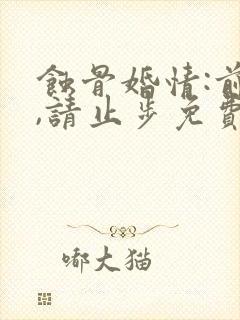 蝕骨婚情:前
,請止步免費
嘟大猫